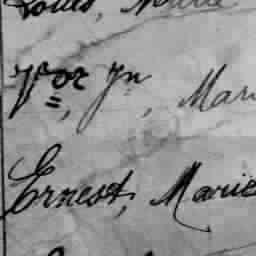 Louis, Marie
Yor Jn, Mari
Ernest, Marie